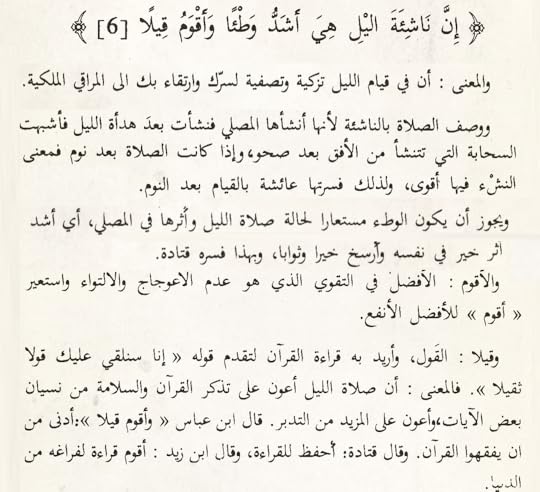 ﴿ إِنَّ نَاشِئَةَ اليْلِ هِيَ أَشَدُّ وَطْئًا وَأَقْوَمُ قِيلًا [6] ﴾
والمعنى : أن في قيام الليل تزكية وتصفية لسرّك وارتقاء بك الى المراقي الملكية.
ووصف الصلاة بالناشئة لأنها أنشأها المصلي فنشأت بعدَ هدأة الليل فأشبهت
السحابة التي تتنشأ من الأفق بعد صحو، وإذا كانت الصلاة بعد نوم فمعنى
النشْء فيها أقوى، ولذلك فسرتها عائشة بالقيام بعد النوم.
ويجوز أن يكون الوطء مستعارا لحالة صلاة الليل وأثرها في المصلي، أي أشد
اثر خير في نفسه وأرسخ خيرا وثوابا، وبهذا فسره قتادة.
والأقوم : الأفضل في التقوي الذي هو عدم الاعوجاج والالتواء واستعير
« أقوم » للأفضل الأنفع.
وقيلا : القَول، وأريد به قراءة القرآن لتقدم قوله « إنا سنلقي عليك قولا
ثقيلا ». فالمعنى : أن صلاة الليل أعون على تذكر القرآن والسلامة من نسيان
بعض الآيات، وأعون على المزيد من التدبر. قال ابن عباس « وأقوم قيلا »: أدنى من
ان يفقهوا القرآن. وقال قتادة: أحفظ للقراءة، وقال ابن زيد : أقوم قراءة لفراغه من
الدنيا.